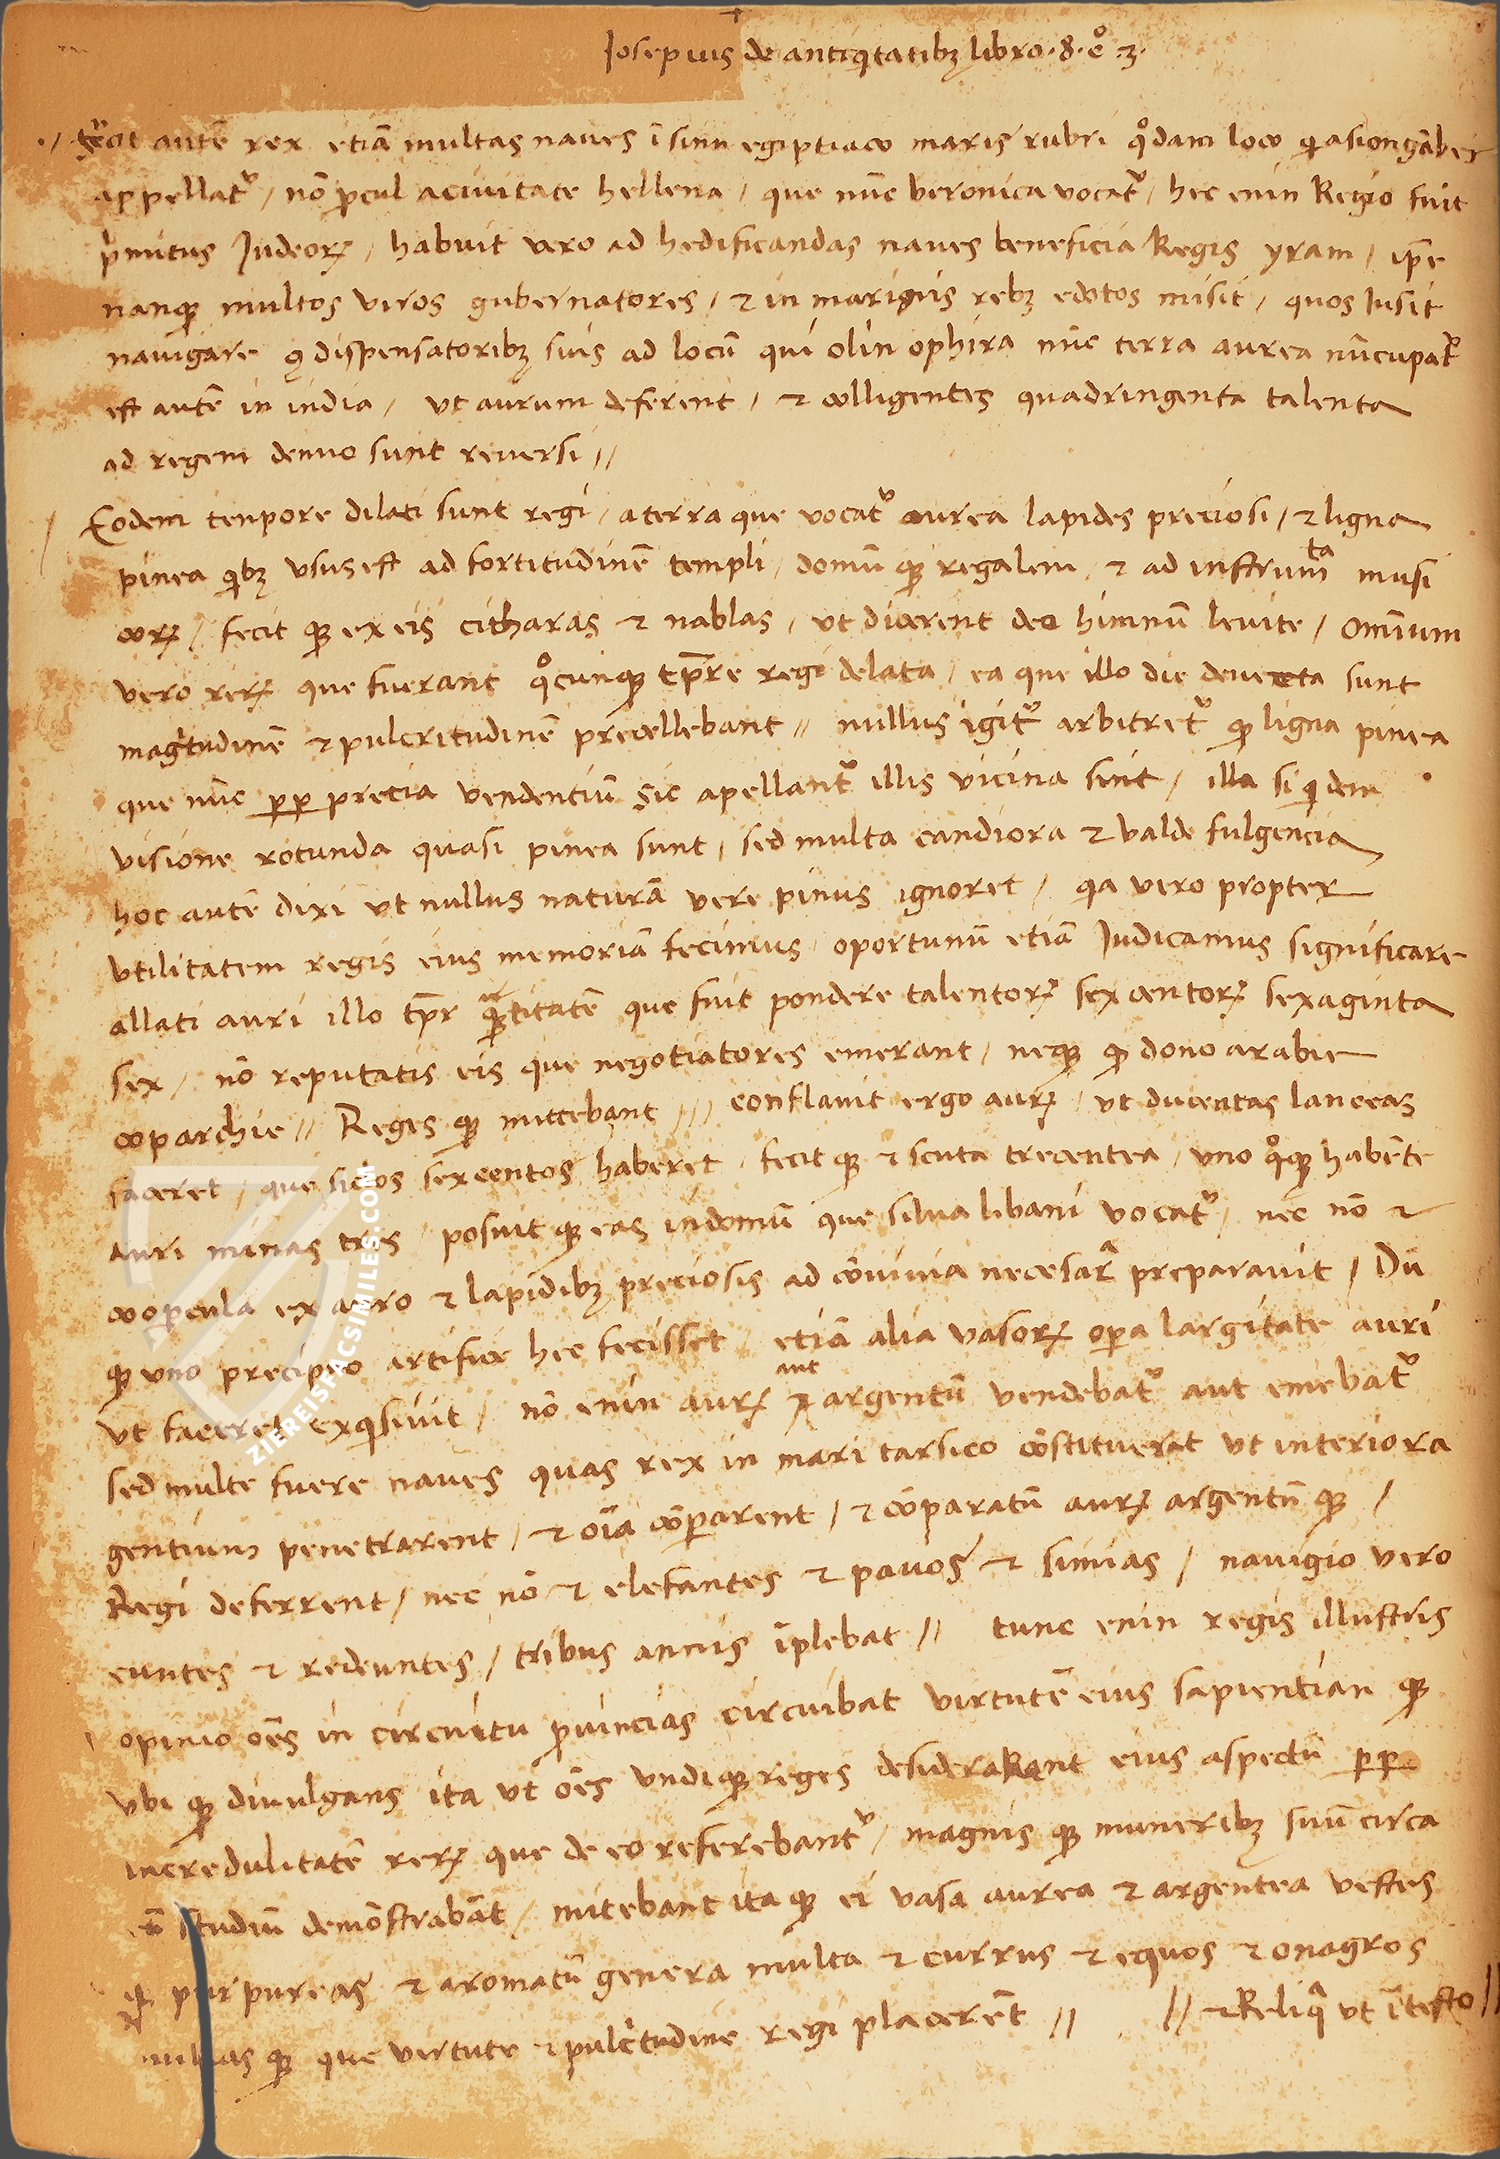 Iosepius de antiq̃tatibꝫ libro · 8 · c° · 3 ·
fecit autẽ rex etiã multas naves ĩ sinu egiptiaco maris rubri q°dam loco q̃ asiongãber
appellatʳ / nõ ꝓcul acivitate hellena / que nũc veronica vocatʳ / hec enin Regio fuit
p̃mitus Judeoꝝ / habuit vero ad hedificandas naves beneficia Regis yram / ip̃e
nanqꝫ multos viros gubernatores / ⁊ in marinis rebꝫ edotos misit / quos Iusit
navigare ꝯ dispensatoribꝫ suis ad locũ qui olin ophira nũc terra aurea nũcupatʳ
est autẽ in india / ut aurum deferent / ⁊ colligentes quadringenta talenta
ad regem denuo sunt reversi //
Eodem tenpore dilati sunt regi / aterra que vocatʳ aurea lapides preciosi / ⁊ ligna
pinea q̃bꝫ usus est ad fortitudinẽ templi / domũ qꝫ regalem / ⁊ ad instrumta musi
coꝝ / fecit qꝫ ex eis citharas ⁊ nablas / ut dicerent deo himnũ levite / omnium
vero reꝝ que fuerant q°cunqꝫ tp̃re regi delata / ea que illo die devecta sunt
magᶦtudinẽ ⁊ pulcritudinẽ precellebant // nullus igitʳ arbitretʳ qꝫ ligna pinea
que nũc pp precia vendentiũ sic apellantʳ illis vicina sint / illa si q̃dem
visione rotunda quasi pinea sunt / sed multa candiora ⁊ valde fulgencia
hoc autẽ dixi ut nullus naturã vere pinus ignoret / qa vero propter
utilitatem regis eius memoriã fecimus / oportunũ etiã Iudicamus significare
allati auri illo tp̃r q̃titatẽ que fuit pondere talentoꝝ sexcentoꝝ sexaginta
sex / nõ reputatis eis que negotiatores emerant / neqꝫ q̃ dono arabie
coparchie // Reges qꝫ mittebant /// conflavit ergo auꝝ / ut ducentas lanceas
faceret / que siclos sexcentos haberet / fecit qꝫ ⁊ scuta trecentea / uno q°qꝫ habẽte
auri minas tres / posuit qꝫ eas indomũ que silva libani vocatʳ / nec nõ ⁊
coopcula ex auro ⁊ lapidibꝫ preciosis ad cõvivia necesarᵃ preparavit / Dũ
qꝫ uno precipuo artifice hec fecisset / etiã alia vasoꝝ opa largitate auri
ut faceret exq̃sivit / nõ enin auꝝ aut argentũ vendebatʳ aut emebatʳ
sed multe fuere naves quas rex in mari tarsico cõstituerat ut interiora
gentium penetrarent / ⁊ oĩa cõpararent / ⁊ cõparatũ auꝝ argentũ qꝫ /
Regi deferrent / nec nõ ⁊ elefantes ⁊ pavos ⁊ simias / navigio vero
euntes ⁊ redeuntes / tribus annis ĩplebat // tunc enin regis illustris
opinio oẽs in circuitu ꝓvincias circuibat virtutẽ eius sapientian qꝫ
ubi qꝫ divulgans ita ut oẽs undiqꝫ reges desiderabant eius aspectũ pp
incredulitatẽ reꝝ que de eo referebantʳ / magnis qꝫ muneribꝫ suũ circa
eũ studiũ demõstrabãt / mitebant ita qꝫ ei vasa aurea ⁊ argentea vestes
qꝫ purpureas ⁊ aromatũ genera multa ⁊ currus ⁊ equos ⁊ onagros
mulas qꝫ que virtute ⁊ pulcᶦtudine regi placerẽt // // ⁊ Reliqᵃ ut ĩ testo //
ZIEREISFACSIMILES.COM